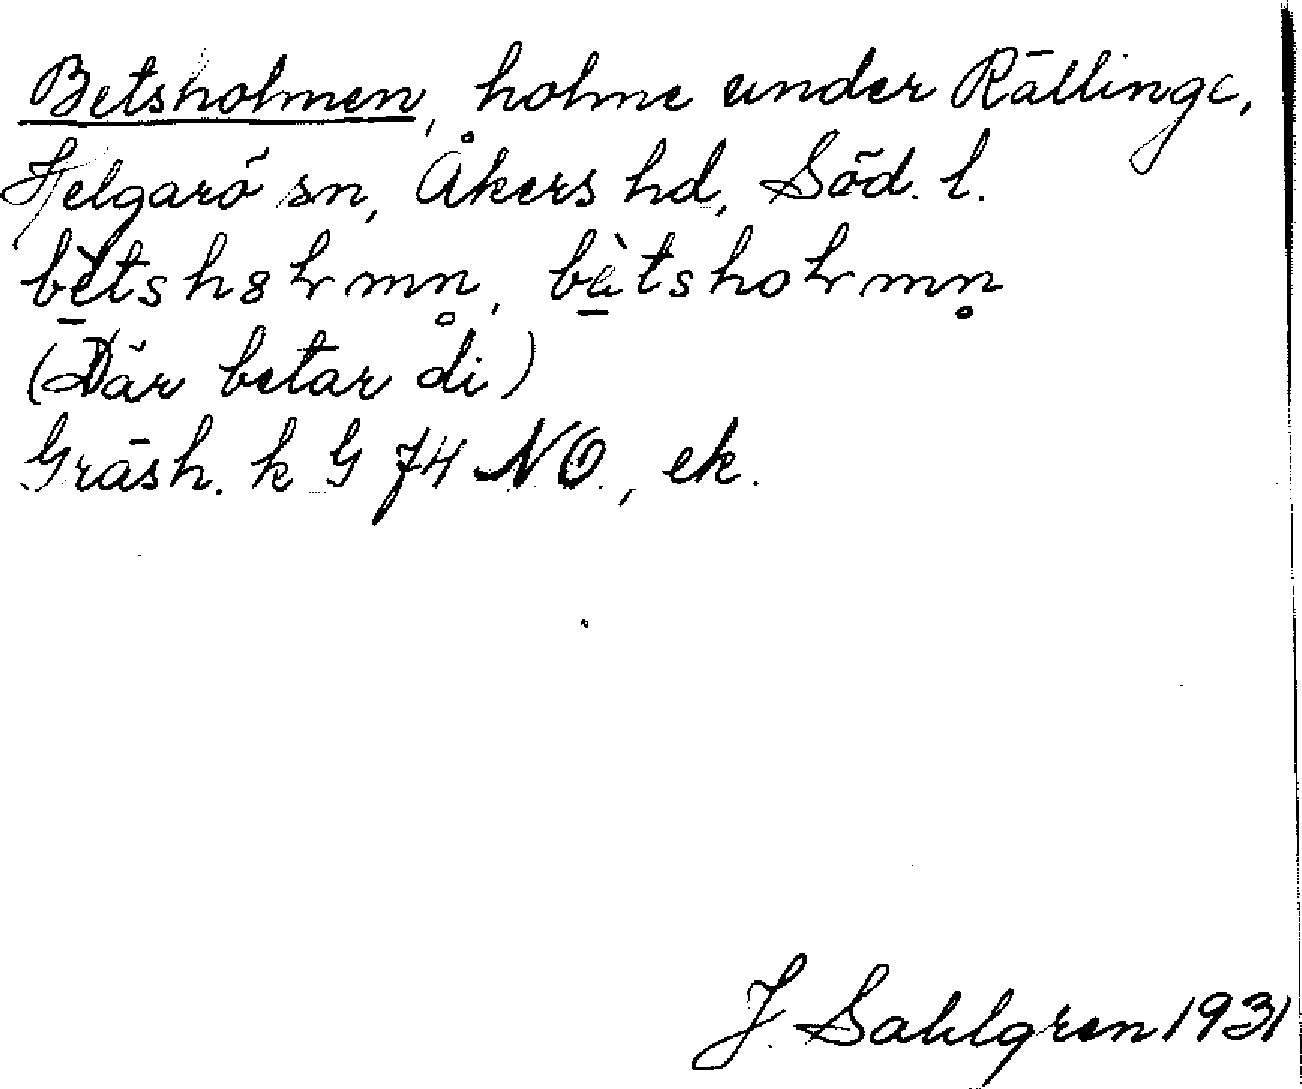 Betsholmen, holme under Rällinge,
Helgarö sn, Åkers hd, Söd. l.
bètshꝏłmn̥, bètshołmn̥
(Där betar di)
Gräsh. k G 74 NO., ek.
J. Sahlgren 1931